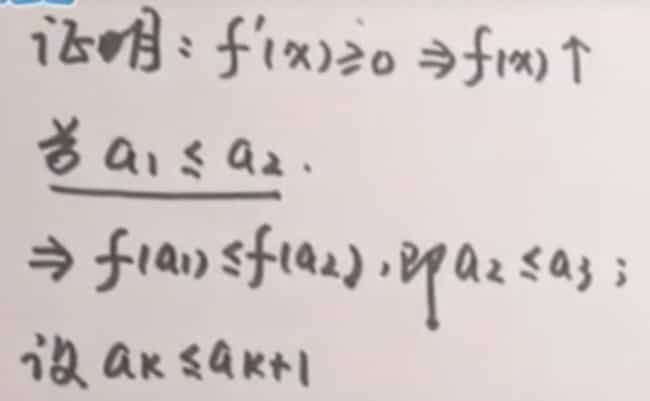 证明：f'(x)≥0 ⇒ f(x)↑
若 a₁ ≤ a₂．
⇒ f(a₁) ≤ f(a₂)，即 a₂ ≤ a₃；
设 aₖ ≤ aₖ₊₁